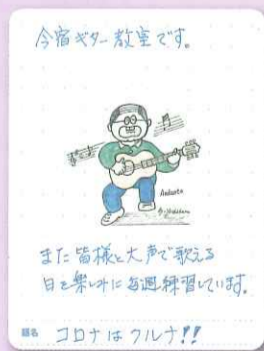 今宿ギター教室です。
Andante
また皆様と大声で歌える
日を楽しみに毎週練習しています。
題名 コロナはクルナ!!